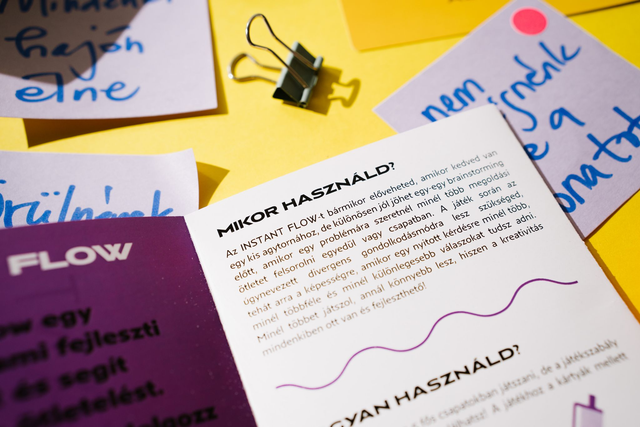 hajón
elne
nem
a
örülnénk
FLOW
egy
fejleszti
és segít
ötletelést.
MIKOR HASZNÁLD?
Az INSTANT FLOW-t bármikor előveheted, amikor kedved van
egy kis agytornához, de különösen jól jöhet egy-egy brainstorming
előtt, amikor egy problémára szeretnél minél több megoldási
ötletet felsorolni egyedül vagy csapatban. A játék során az
úgynevezett divergens gondolkodásmódra lesz szükséged,
tehát arra a képességre, amikor egy nyitott kérdésre minél több,
minél többféle és minél különlegesebb válaszokat tudsz adni.
Minél többet játszol, annál könnyebb lesz, hiszen a kreativitás
mindenkiben ott van és fejleszthető!
GYAN HASZNÁLD?
fős csapatokban játszani, de a játékszabály
A játékhoz a kártyák mellett